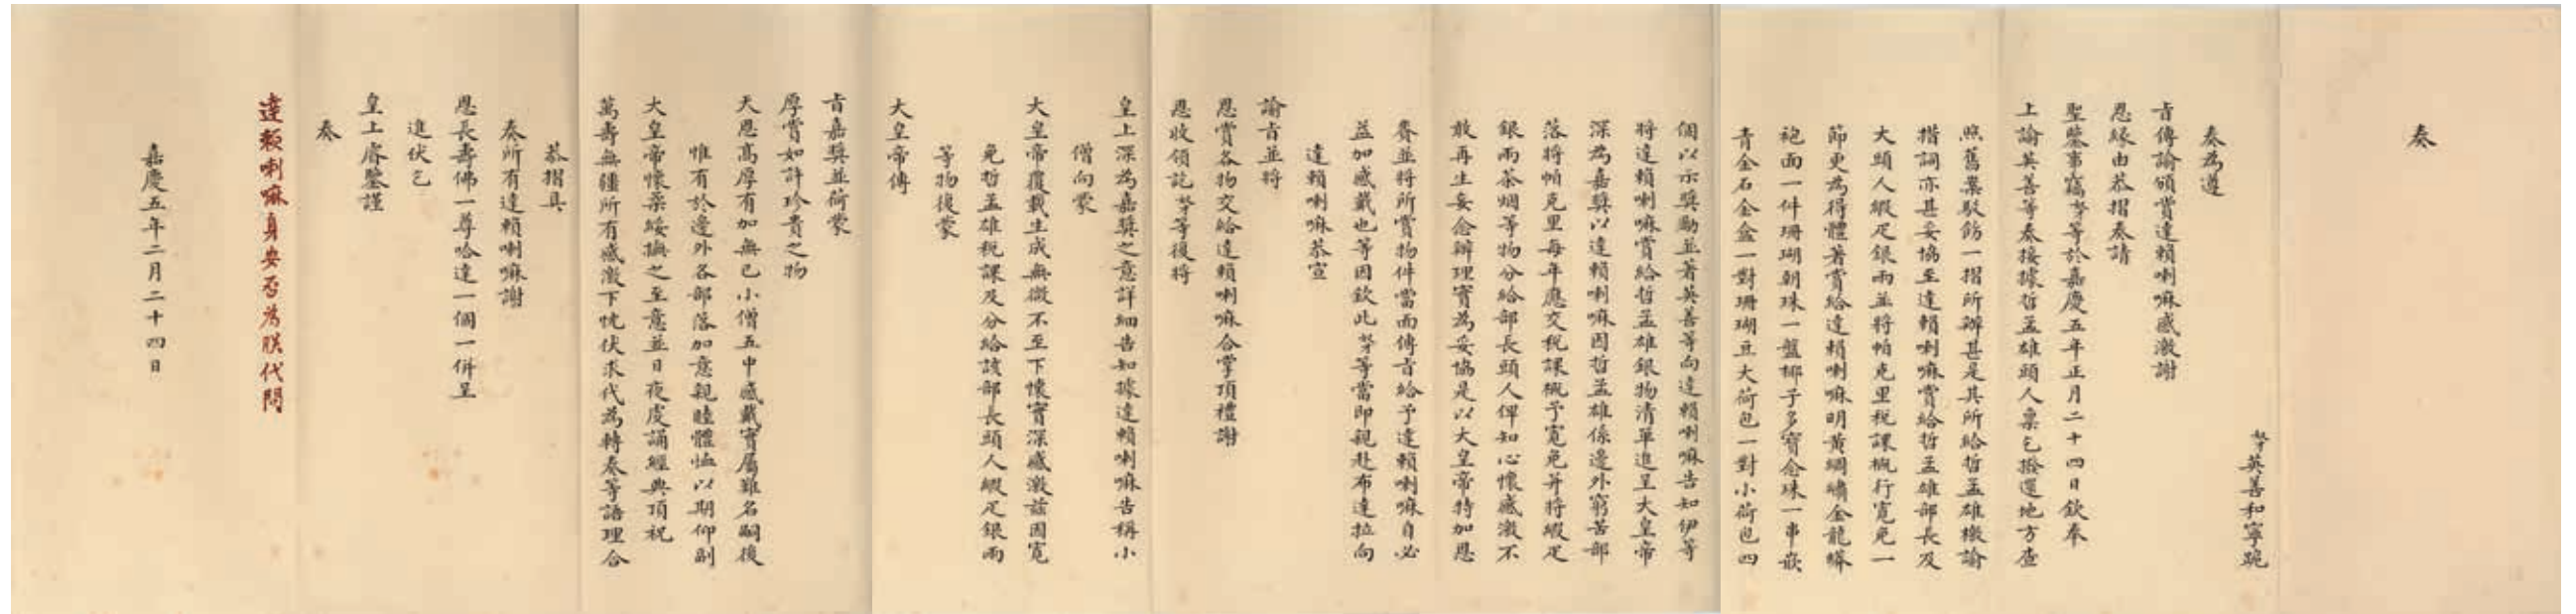 奏
奴才英善和寧跪
奏為遵
旨傳諭頒賞達賴喇嘛感激謝
恩緣由恭摺奏請
聖鑒事竊奴才等於嘉慶五年正月二十四日欽奉
上諭英善等奏接據哲孟雄頭人稟乞撥還地方查
照舊案駁飭一摺所辦甚是其所給哲孟雄檄諭
措詞亦甚妥協至達賴喇嘛賞給哲孟雄部長及
大頭人緞疋銀兩並將帕克里稅課概行寬免一
節更為得體著賞給達賴喇嘛明黃綢繡金龍蟒
袍面一件珊瑚朝珠一盤椰子多寶念珠一串嵌
青金石金盒一對珊瑚豆大荷包一對小荷包四
個以示獎勵並著英善等向達賴喇嘛告知伊等
將達賴喇嘛賞給哲孟雄銀物清單進呈大皇帝
深為嘉獎以達賴喇嘛因哲孟雄係邊外窮苦部
落將帕克里每年應交稅課概予寬免并將緞疋
銀兩茶烟等物分給部長頭人俾知心懷感激不
敢再生妄念辦理實為妥協是以大皇帝特加恩
賚並將所賞物件當面傳旨給予達賴喇嘛自必
益加感戴也等因欽此奴才等當即親赴布達拉向
達賴喇嘛恭宣
諭旨並將
恩賞各物交給達賴喇嘛合掌頂禮謝
恩收領訖奴才等復將
皇上深為嘉獎之意詳細告知據達賴喇嘛告稱小
僧向蒙
大皇帝覆載生成無微不至下懷實深感激茲因寬
免哲孟雄稅課及分給該部長頭人緞疋銀兩
等物復蒙
大皇帝傳
旨嘉獎並荷蒙
厚賞如許珍貴之物
天恩高厚有加無已小僧五中感戴實屬難名嗣後
惟有於邊外各部落加意親睦體恤以期仰副
大皇帝懷柔綏撫之至意並日夜虔誦經典頂祝
萬壽無疆所有感激下忱伏求代為轉奏等語理合
恭摺具
奏所有達賴喇嘛謝
恩長壽佛一尊哈達一個一併呈
進伏乞
皇上睿鑒謹
奏
達賴喇嘛身安否為朕代問
嘉慶五年二月二十四日